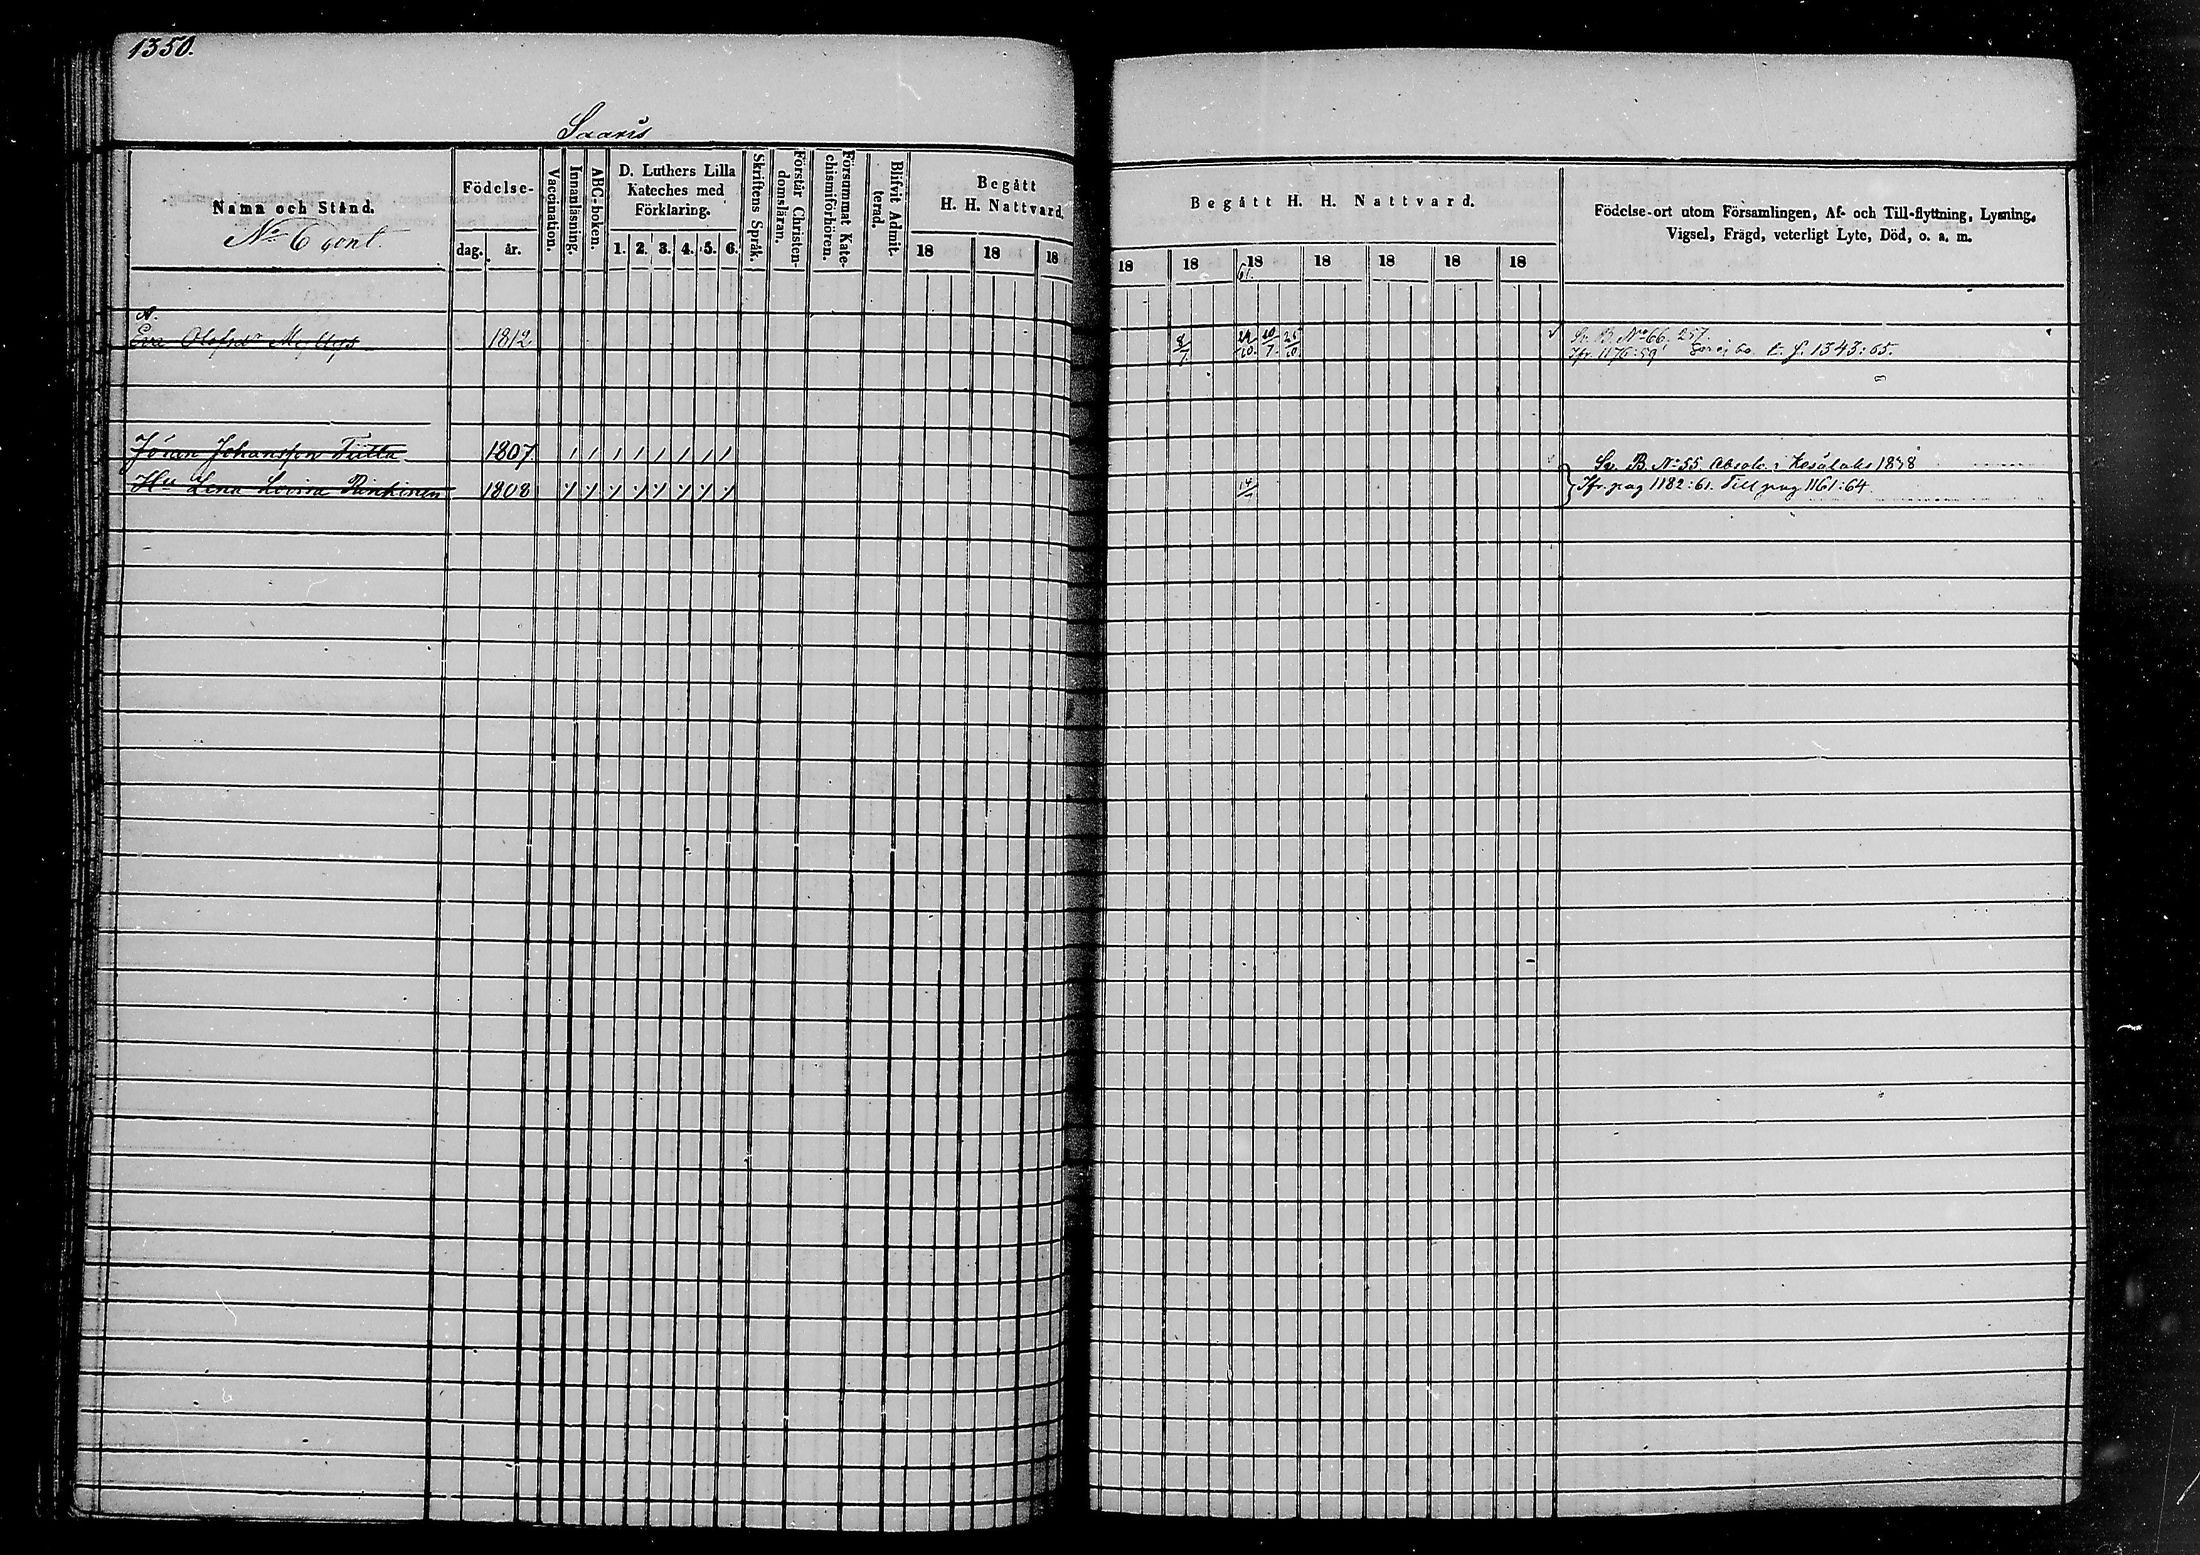 1350.
Saaris
Namn och Stånd.
No 6 cont.
Födelse-
dag. år.
Vaccination.
Innanläsning.
ABC-boken.
D. Luthers Lilla
Kateches med
Förklaring.
1. 2. 3. 4. 5. 6.
Skriftens Språk.
Förstår Christen-
domsläran.
Försummat Kate-
chismiförhören.
Blifvit Admit-
terad.
Begått
H. H. Nattvard.
18 18 18
Begått H. H. Nattvard.
18 18 18 61. 18 18 18 18
Födelse-ort utom Församlingen, Af- och Till-flyttning, Lysning,
Vigsel, Frägd, veterligt Lyte, Död, o. a. m.
Eva Olofsdr 1812 8/7 10/7 25/10 Sv. B. No 66, 257.
Ifr. 1176:59 t. f. 1343:65.
Jöran Johansson Tiitta 1807 Sv. B. No 55. Absolv. i Kesälaks 1848
Hu Lena Lovisa Pänkinen 1808 14/7 Ifr. pag 1182:61. Till pag 1161:64.